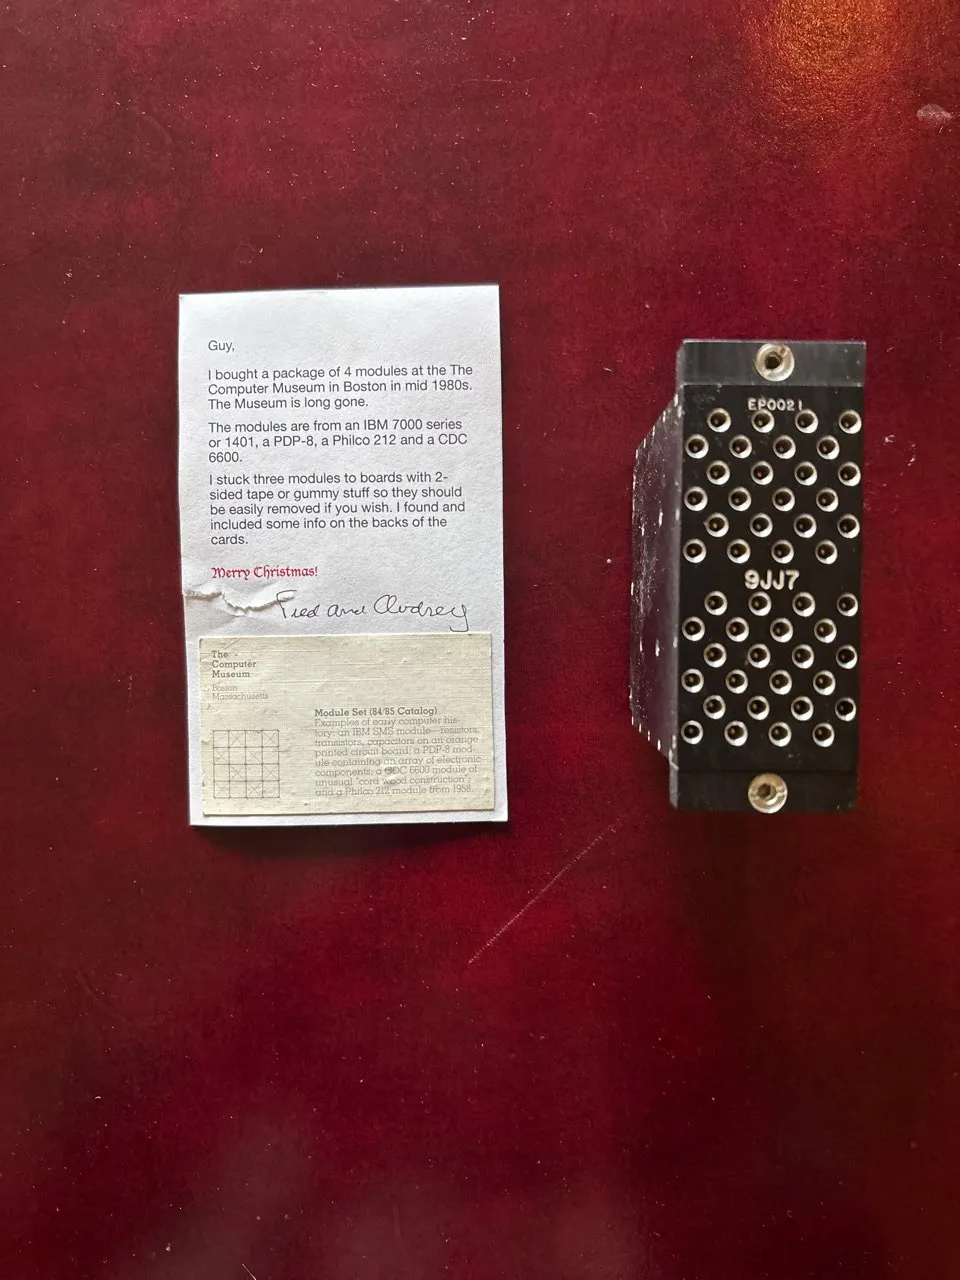 Guy,
I bought a package of 4 modules at the The
Computer Museum in Boston in mid 1980s.
The Museum is long gone.
The modules are from an IBM 7000 series
or 1401, a PDP-8, a Philco 212 and a CDC
6600.
I stuck three modules to boards with 2-
sided tape or gummy stuff so they should
be easily removed if you wish. I found and
included some info on the backs of the
cards.
Merry Christmas!
Fred and Audrey
The
Computer
Museum
Boston
Massachusetts
Module Set (84/85 Catalog)
Examples of early computer his-
tory: an IBM SMS module—resistors,
transistors, capacitors on an orange
printed circuit board; a PDP-8 mod-
ule containing an array of electronic
components; a CDC 6600 module of
unusual "cord wood construction";
and a Philco 212 module from 1958.
EP0021
9JJ7